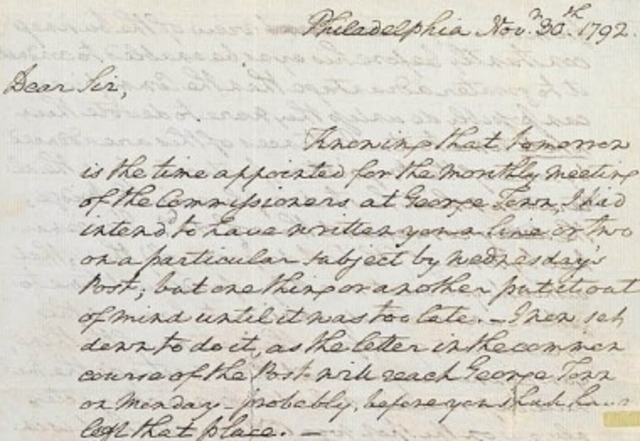 Philadelphia Nov.r 30.th 1792.
Dear Sir,
Knowing that tomorrow
is the time appointed for the monthly meeting
of the Commissioners at George Town, I had
intend to have written you a line or two
on a particular subject by Wednesday's
Post; but one thing or another put it out
of mind until it was too late. — I now set
down to do it, as the letter in the common
course of the Post will reach George Town
on Monday — probably, before you shall have
left that place. —